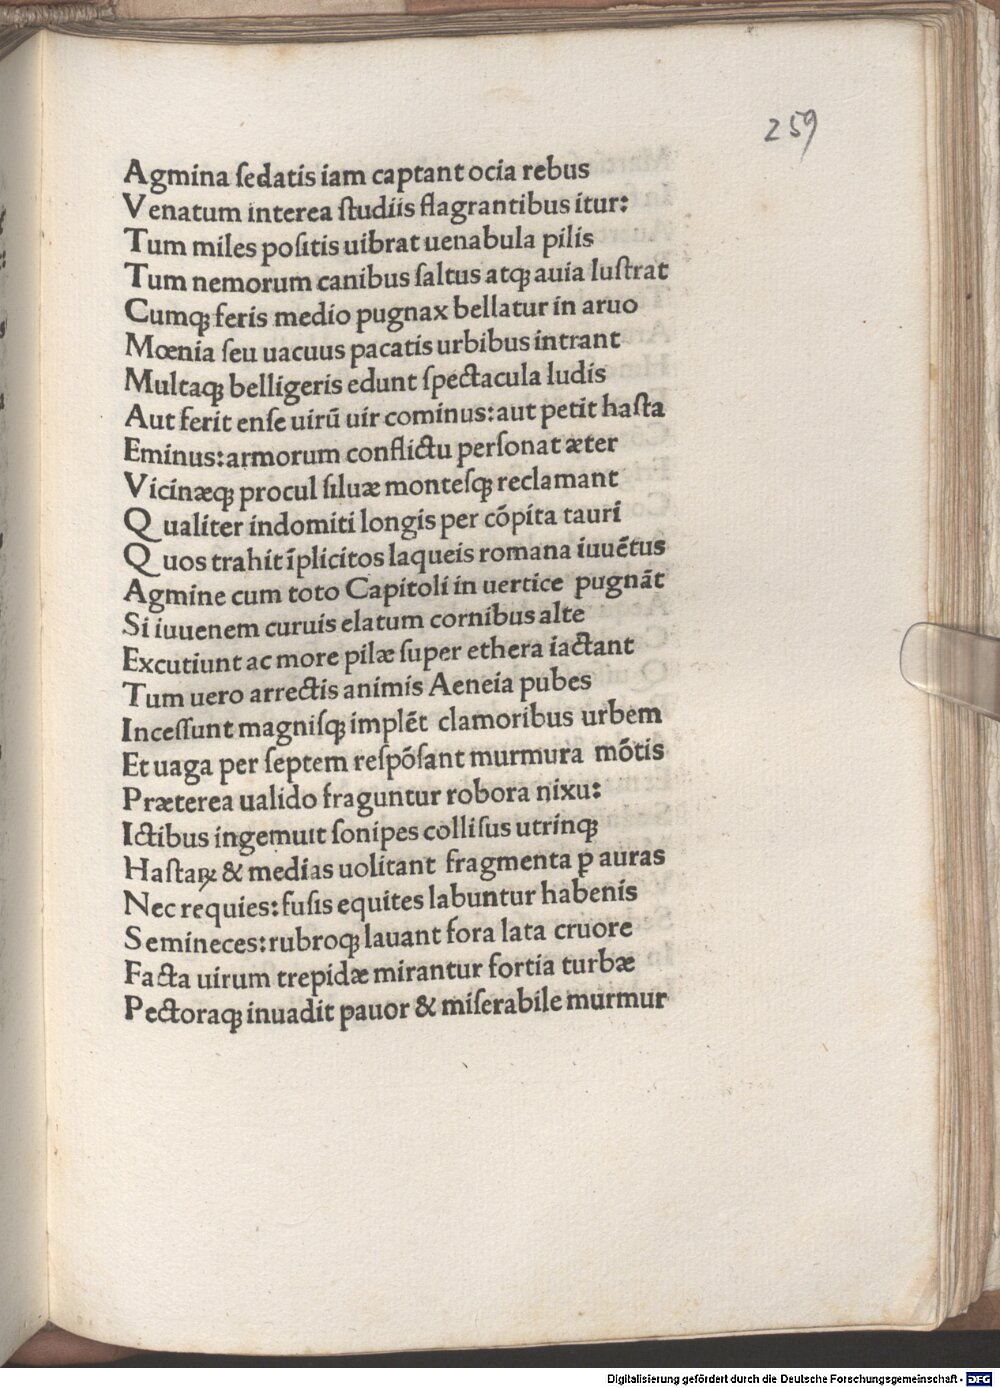 259
Agmina ſedatis iam captant ocia rebus
Venatum interea ſtudiis flagrantibus itur:
Tum miles poſitis uibrat uenabula pilis
Tum nemorum canibus ſaltus atqꝫ auia luſtrat
Cumqꝫ feris medio pugnax bellatur in aruo
Mœnia ſeu uacuus pacatis urbibus intrant
Multaqꝫ belligeris edunt ſpectacula ludis
Aut ferit enſe uirū uir cominus: aut petit haſta
Eminus: armorum conflictu perſonat æter
Vicinæqꝫ procul ſiluæ monteſqꝫ reclamant
Qualiter indomiti longis per cōpita tauri
Quos trahit īplicitos laqueis romana iuuētus
Agmine cum toto Capitoli in uertice pugnāt
Si iuuenem curuis elatum cornibus alte
Excutiunt ac more pilæ ſuper ethera iactant
Tum uero arrectis animis Aeneia pubes
Inceſſunt magniſqꝫ implēt clamoribus urbem
Et uaga per ſeptem reſpōſant murmura mōtis
Præterea ualido franguntur robora nixu:
Ictibus ingemuit ſonipes colliſus utrinqꝫ
Haſtaꝝ & medias uolitant fragmenta ꝑ auras
Nec requies: fuſis equites labuntur habenis
Semineces: rubroqꝫ lauant fora lata cruore
Facta uirum trepidæ mirantur fortia turbæ
Pectoraqꝫ inuadit pauor & miſerabile murmur
Digitalisierung gefördert durch die Deutsche Forschungsgemeinschaft - DFG